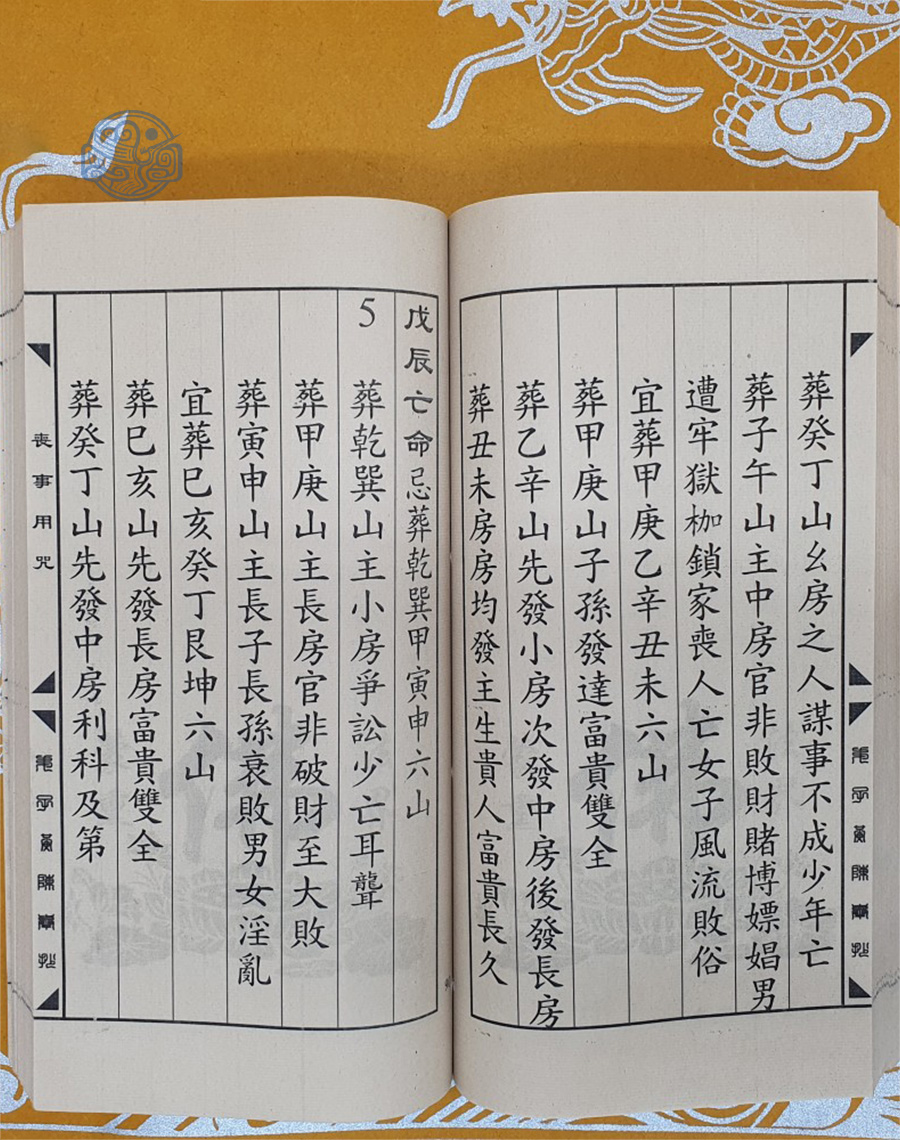 葬癸丁山幺房之人謀事不成少年亡
葬子午山主中房官非敗財賭博嫖娼男
遭牢獄枷鎖家喪人亡女子風流敗俗
宜葬甲庚乙辛丑未六山
葬甲庚山子孫發達富貴雙全
葬乙辛山先發小房次發中房後發長房
葬丑未房房均發主生貴人富貴長久
戊辰亡命忌葬乾巽甲寅申六山
5 葬乾巽山主小房爭訟少亡耳聾
葬甲庚山主長房官非破財至大敗
葬寅申山主長子長孫衰敗男女淫亂
宜葬巳亥癸丁艮坤六山
葬巳亥山先發長房富貴雙全
葬癸丁山先發中房利科及第
喪事用咒